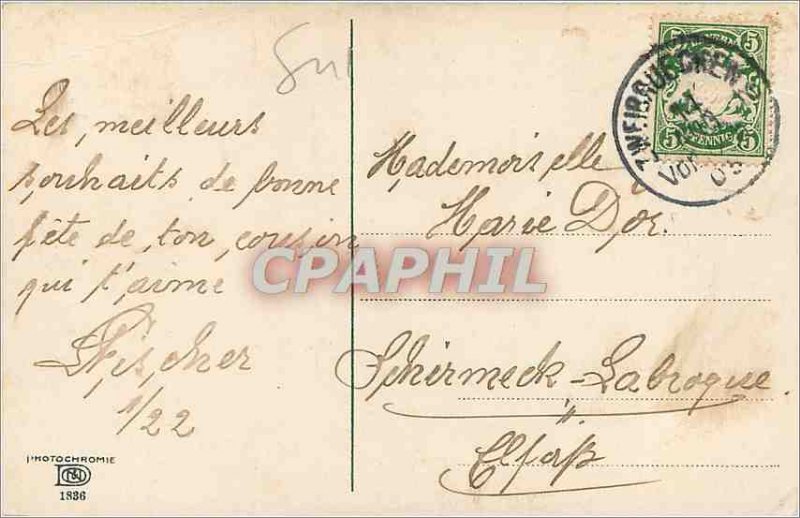 Les, meilleurs
souhaits de bonne
fête de, ton, cousin
qui t'aime
Fischer
1/22
PHOTOCHROMIE
1836
Mademoiselle
Marie Dor.
Schirmeck-Labroque.
Elsaß
ZWEIBRUECKEN
BAYERN
5 5
5 PFENNIG 5
CPAPHIL